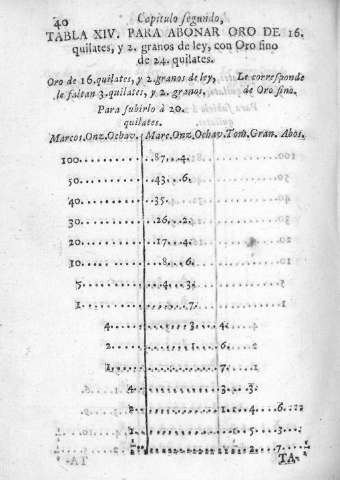 40 Capitulo segundo,
TABLA XIV. PARA ABONAR ORO DE 16.
quilates, y 2. granos de ley, con Oro fino
de 24. quilates.
Oro de 16. quilates, y 2. granos de ley, Le corresponde
le faltan 3. quilates, y 2. granos, de Oro fino.
Para subirlo à 20.
quilates.
Marcos. Onz. Ochav. Marc. Onz. Ochav. Tom. Gran. Abos.
100. 87. 4.
50. 43. 6.
40. 35.
30. 26. 2.
20. 17. 4.
10. 8. 6.
5. 4. 3.
1. 7.
4. 3. 4.
2. 1. 6.
1. 7.
4. 3. 3.
2. 1. 4. 6.
1. 5. 3.
2. 7.
TA-